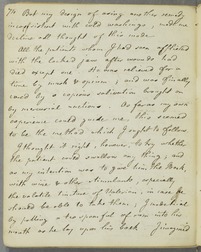 74 But my design of using another remedy,
inconsistent with cold washings, made me
decline all thought of this mode.
All the patients whom I had seen afflicted
with the locked jaw after wounds had
died except one. He was relieved for a
time by musk & opium, and was finally
cured by a copious salivation brought on
by mercurial unctions. As far as my own
experience could guide me, this seemed
to be the method which I ought to follow.
I thought it right, however, to try whether
the patient could swallow any thing, and
as my intention was to give him the Bark,
with wine & other stimulants, especially
the volatile tincture of Valerian, in case he
should be able to take them, I
by putting a tea spoonful of wine into his
mouth as he lay upon his back. I imagined